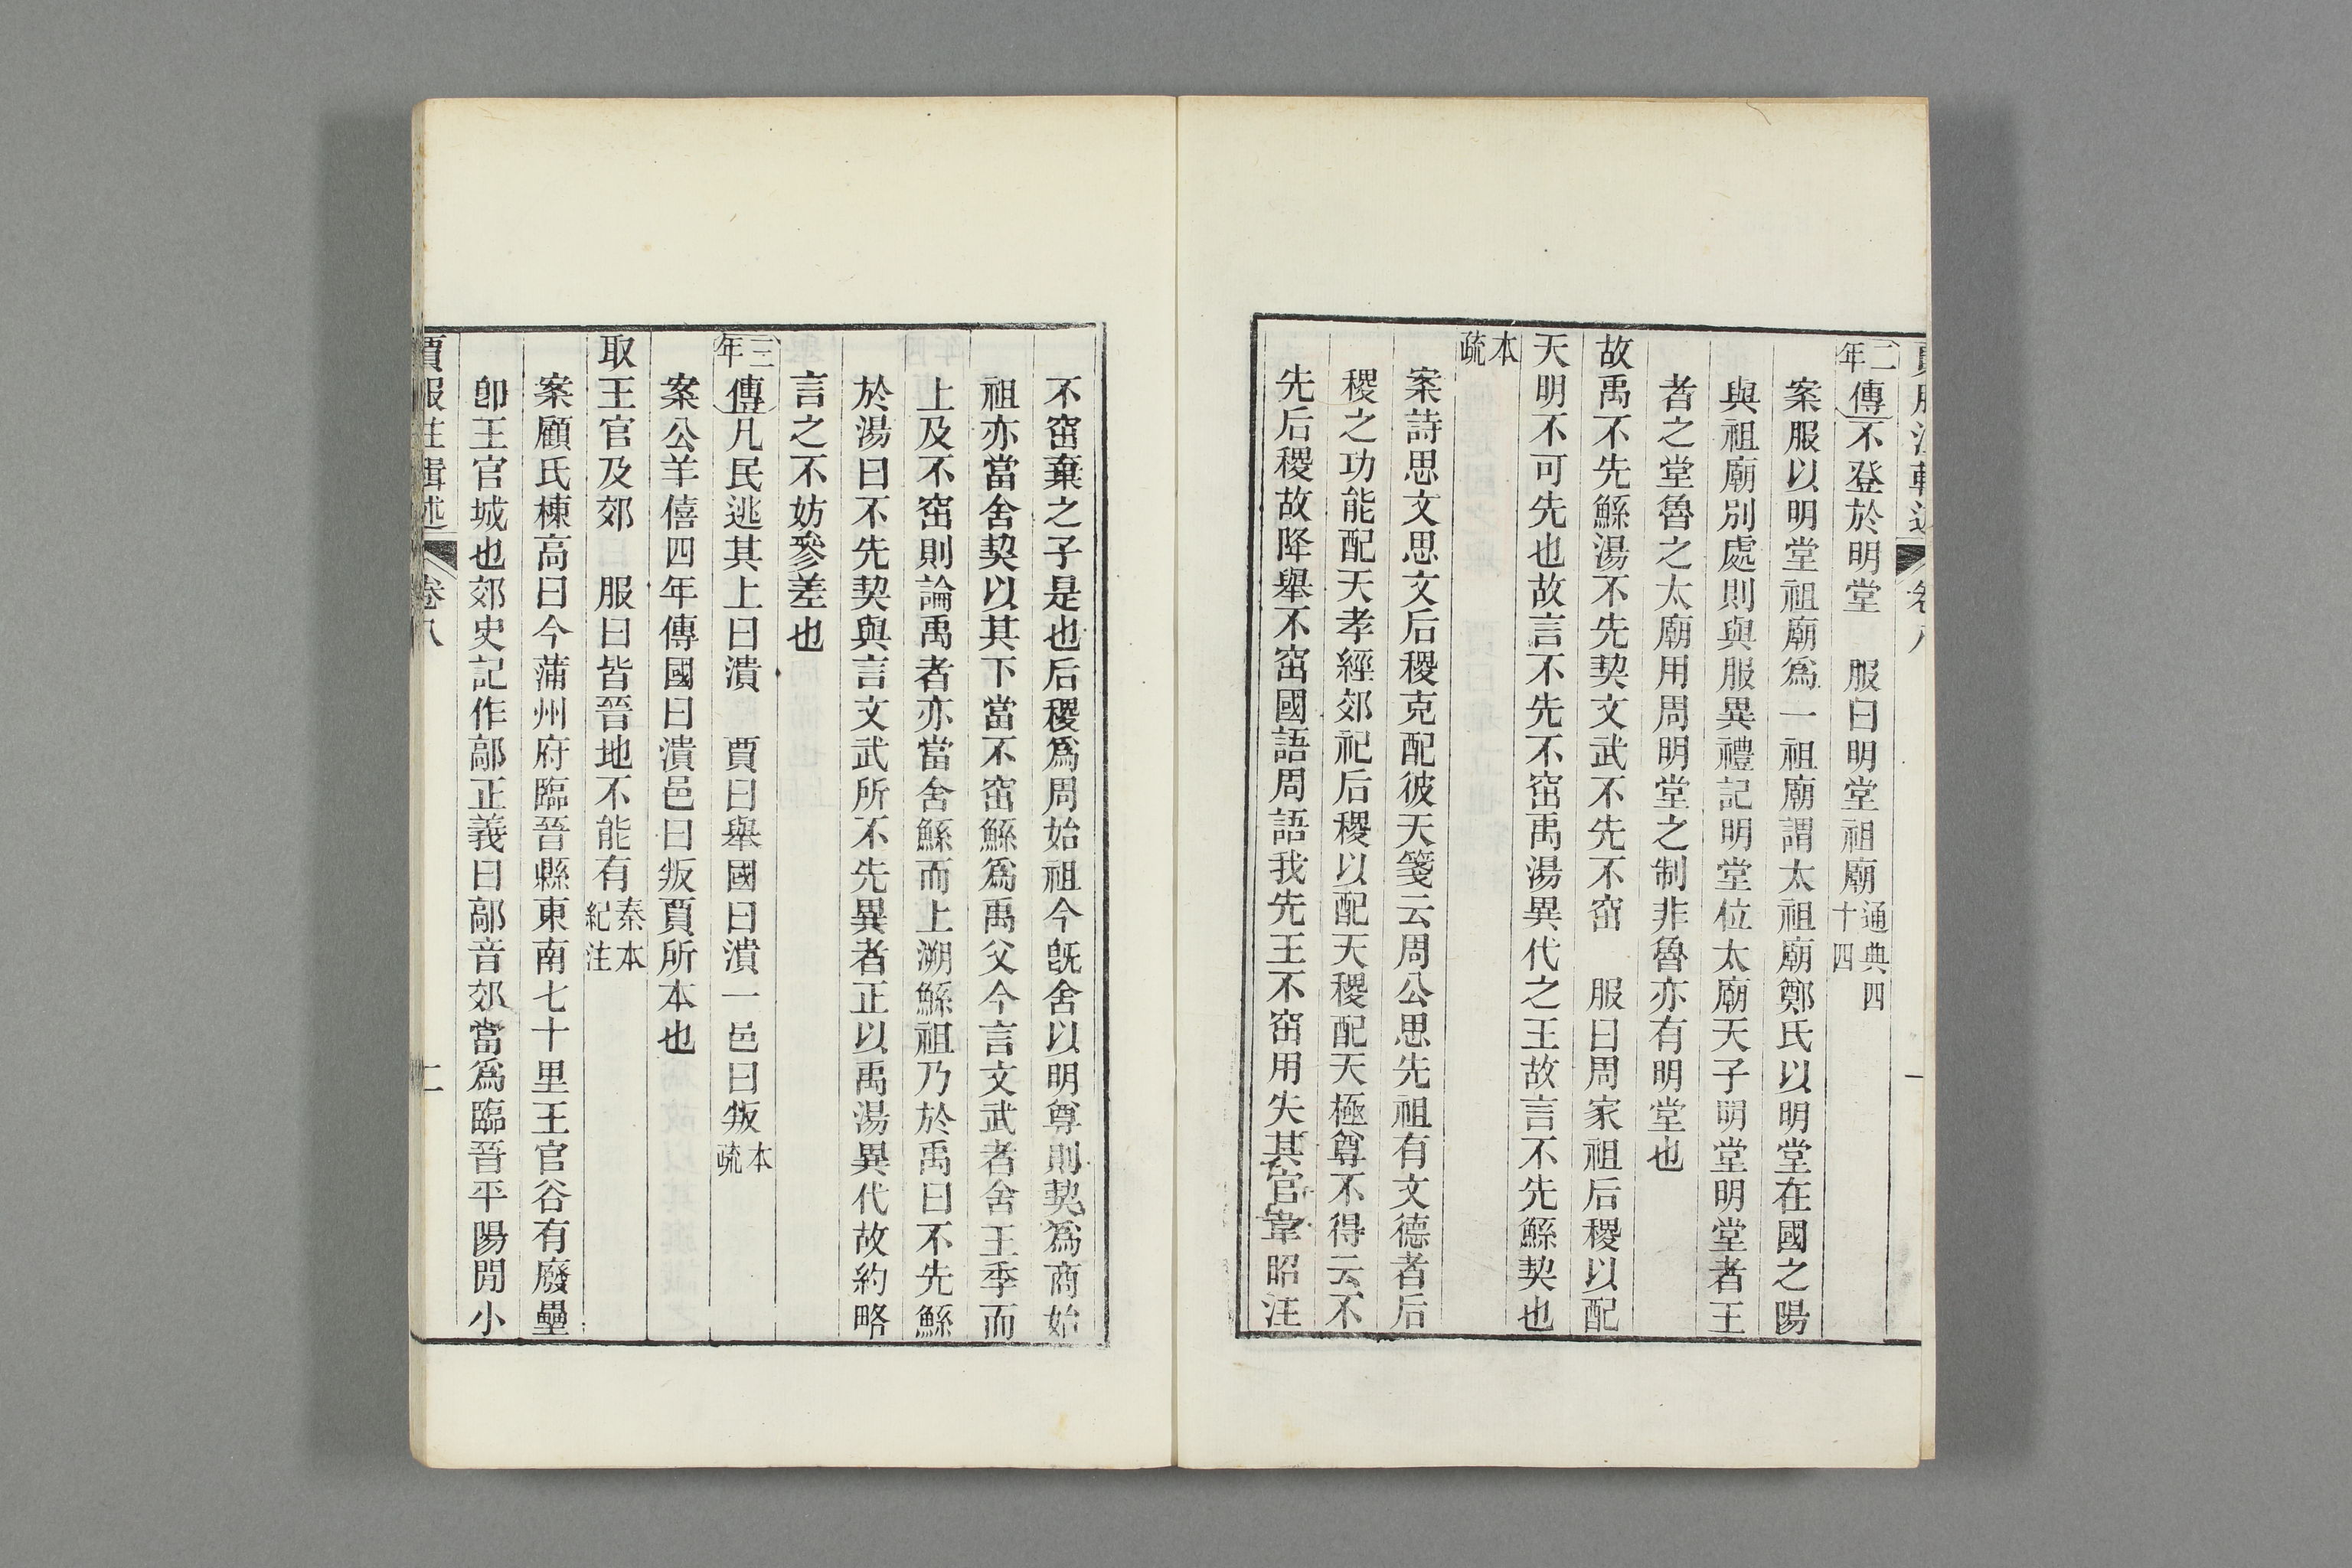 二年傳不登於明堂　服曰明堂祖廟通典四十四
案服以明堂祖廟爲一祖廟謂太祖廟鄭氏以明堂在國之陽
與祖廟別處則與服異禮記明堂位太廟天子明堂明堂者王
者之堂魯之太廟用周明堂之制非魯亦有明堂也
故禹不先鯀湯不先契文武不先不窋　服曰周家祖后稷以配
天明不可先也故言不先不窋禹湯異代之王故言不先鯀契也
本疏
案詩思文思文后稷克配彼天箋云周公思先祖有文德者后
稷之功能配天孝經郊祀后稷以配天稷配天極尊不得云不
先后稷故降舉不窋國語周語我先王不窋用失其官韋昭注
不窋棄之子是也后稷爲周始祖今旣舍以明尊則契爲商始
祖亦當舍契以其下當不窋鯀爲禹父今言文武者舍王季而
上及不窋則論禹者亦當舍鯀而上溯鯀祖乃於禹曰不先鯀
於湯曰不先契與言文武所不先異者正以禹湯異代故約略
言之不妨參差也
三年傳凡民逃其上曰潰　賈曰舉國曰潰一邑曰叛本疏
案公羊僖四年傳國曰潰邑曰叛賈所本也
取王官及郊　服曰皆晉地不能有秦本紀注
案顧氏棟高曰今蒲州府臨晉縣東南七十里王官谷有廢壘
卽王官城也郊史記作鄗正義曰鄗音郊當爲臨晉平陽閒小
賈服注輯述　卷八　二